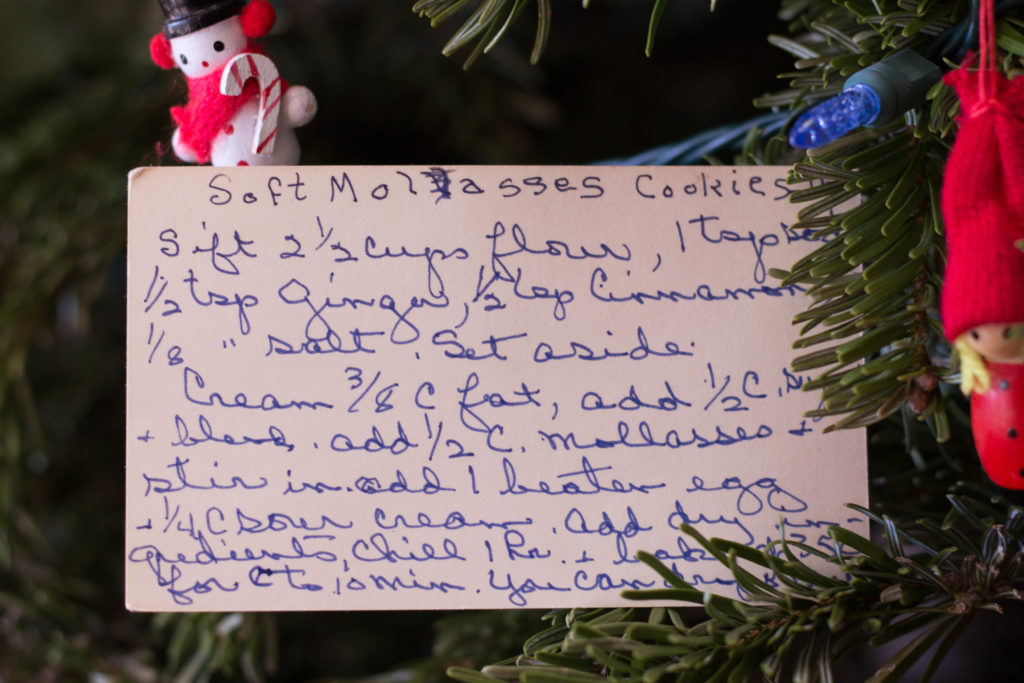 Soft Mollasses Cookies
Sift 2 1/2 cups flour, 1 tsp
1/2 tsp Ginger, 1/2 tsp Cinnamon
1/8 " salt. Set aside.
Cream 3/8 C fat, add 1/2 C.
+ blend. add 1/2 C. mollasses +
stir in. add 1 beaten egg
+ 1/4 C sour cream. Add dry in-
gredients, Chill 1 Hr. + bake
for to 10 min. You can